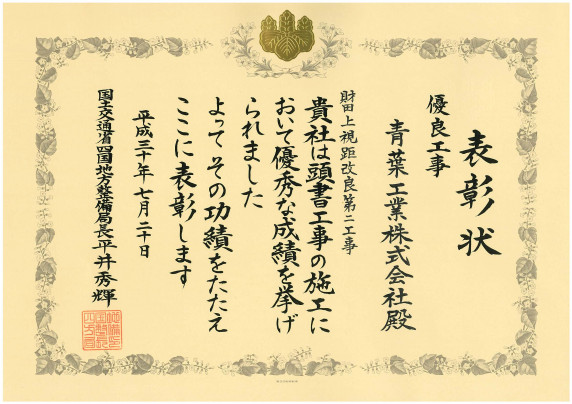 表彰状
優良工事
青葉工業株式会社殿
財田上視距改良第二工事
貴社は頭書工事の施工に
おいて優秀な成績を挙げ
られました
よってその功績をたたえ
ここに表彰します
平成三十年七月二十日
国土交通省四国地方整備局長平井秀輝